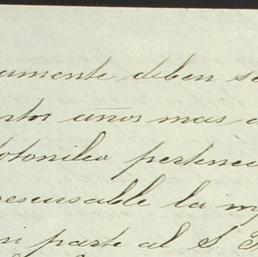 amente deben se
ntos años mas a
otonilco pertenec
rescusable la m
ni parte al S. P